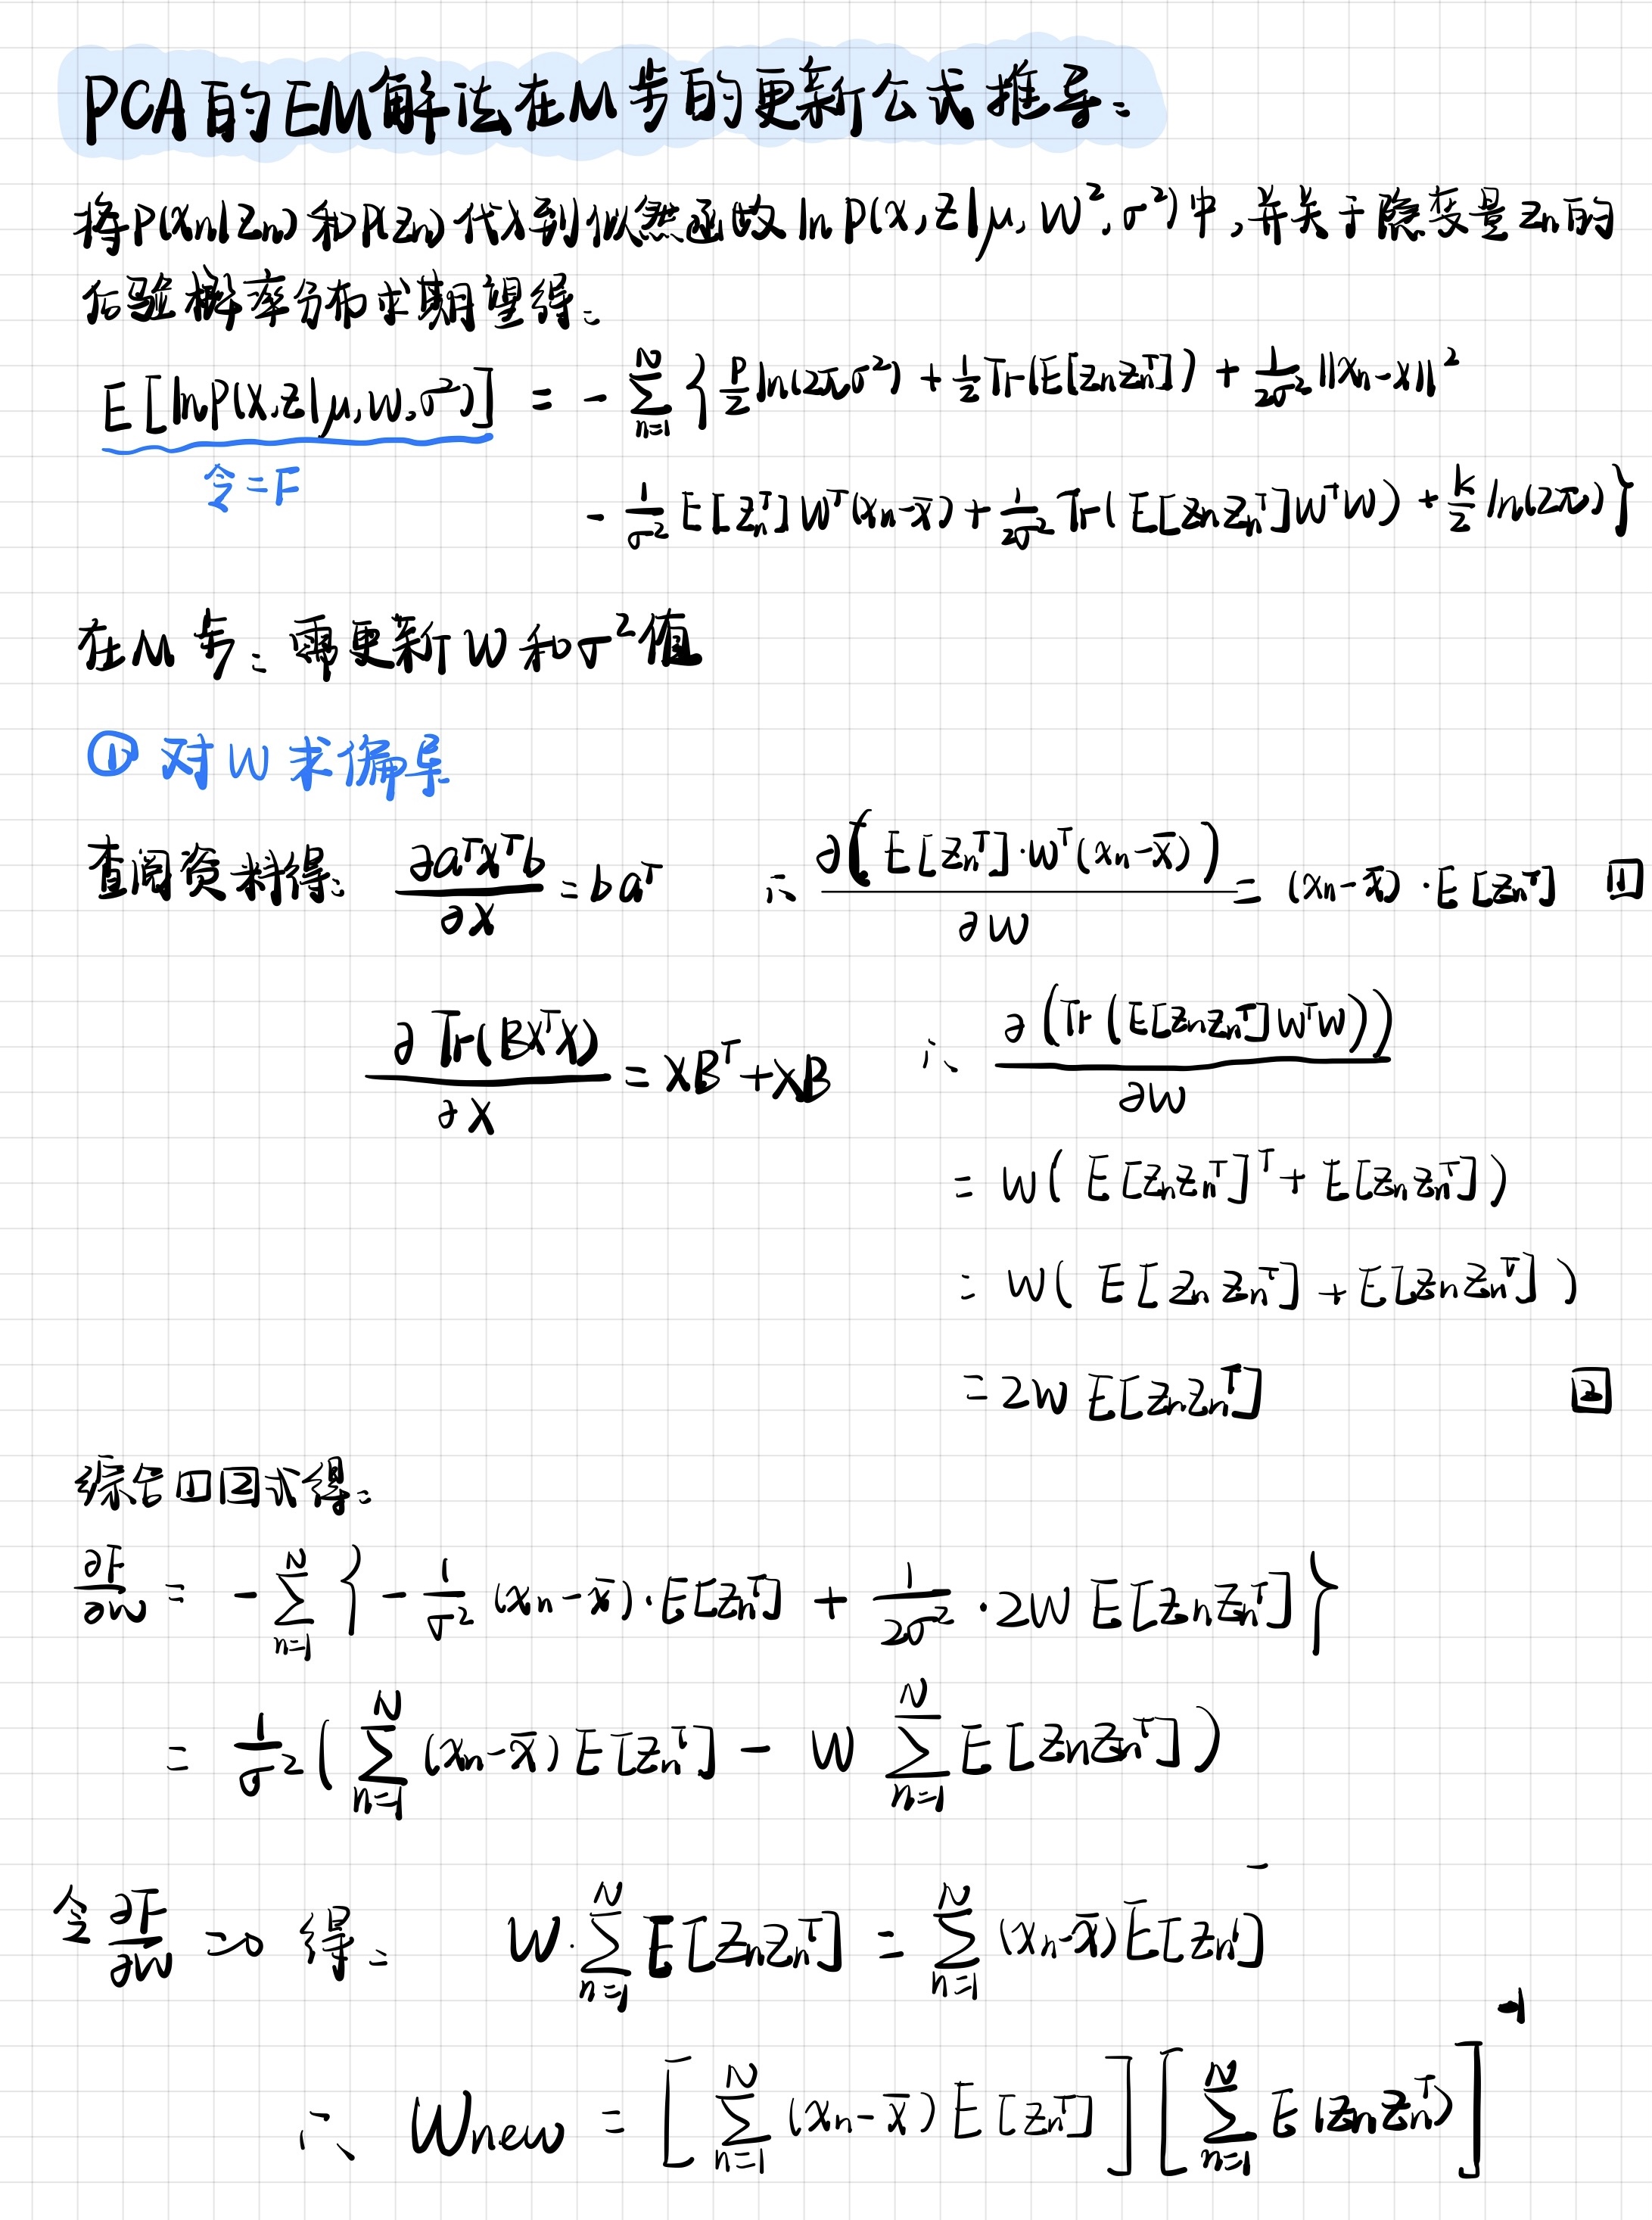 PCA的EM解法在M步的更新公式推导：
将P(xn|zn)和P(zn)代入到似然函数 ln p(x,z|μ, W², σ²)中,并关于隐变量zn的
后验概率分布求期望得：
E[lnP(X,Z|μ,W,σ²)] = - ∑_{n=1}^{N} { p/2 ln(2πσ²) + 1/2 Tr(E[znzn^T]) + 1/(2σ²) ||xn-x||²
令=F
- 1/σ² E[zn^T] W^T(xn-x̄) + 1/(2σ²) Tr(E[znzn^T]W^TW) + k/2 ln(2π) }
在M步：需更新W和σ²值
① 对W求偏导
查阅资料得： ∂a^TX^Tb/∂X = ba^T ∴ ∂(E[zn^T]·W^T(xn-x̄))/∂W = (xn-x̄)·E[zn^T] [1]
∂Tr(BX^TX)/∂X = XB^T+XB ∴ ∂(Tr(E[znzn^T]W^TW))/∂W
= W(E[znzn^T]^T + E[znzn^T])
= W(E[znzn^T] + E[znzn^T])
= 2W E[znzn^T] [2]
综合[1][2]式得：
∂F/∂W = - ∑_{n=1}^{N} { - 1/σ² (xn-x̄)·E[zn^T] + 1/(2σ²) · 2W E[znzn^T] }
= 1/σ² ( ∑_{n=1}^{N} (xn-x̄) E[zn^T] - W ∑_{n=1}^{N} E[znzn^T] )
令 ∂F/∂W =0 得： W·∑_{n=1}^{N} E[znzn^T] = ∑_{n=1}^{N} (xn-x̄)E[zn^T]
∴ Wnew = [ ∑_{n=1}^{N} (xn-x̄) E[zn^T] ] [ ∑_{n=1}^{N} E(znzn^T) ]^{-1}